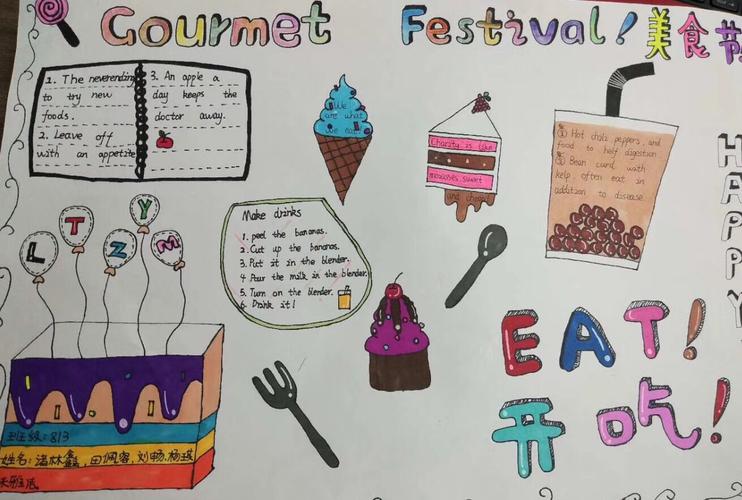 Gourmet Festival! 美食节
1. The neverending
to try new
foods.
2. Leave off
with an appetite
3. An apple a
day keeps the
doctor away.
We
are what
we eat
Charity is like
molasses, sweet
and cheap
① Hot chili peppers, and
food to help digestion
② Bean curd with
kelp, often eat in
addition to disease
HAPPY
L T Z Y M
Make drinks
1. peel the bananas.
2. Cut up the bananas.
3. Put it in the blender.
4 Pour the milk in the blender.
5. Turn on the blender.
6. Drink it!
EAT!
开吃!
班级:813
姓名:
田佩容,刘畅,杨瑛